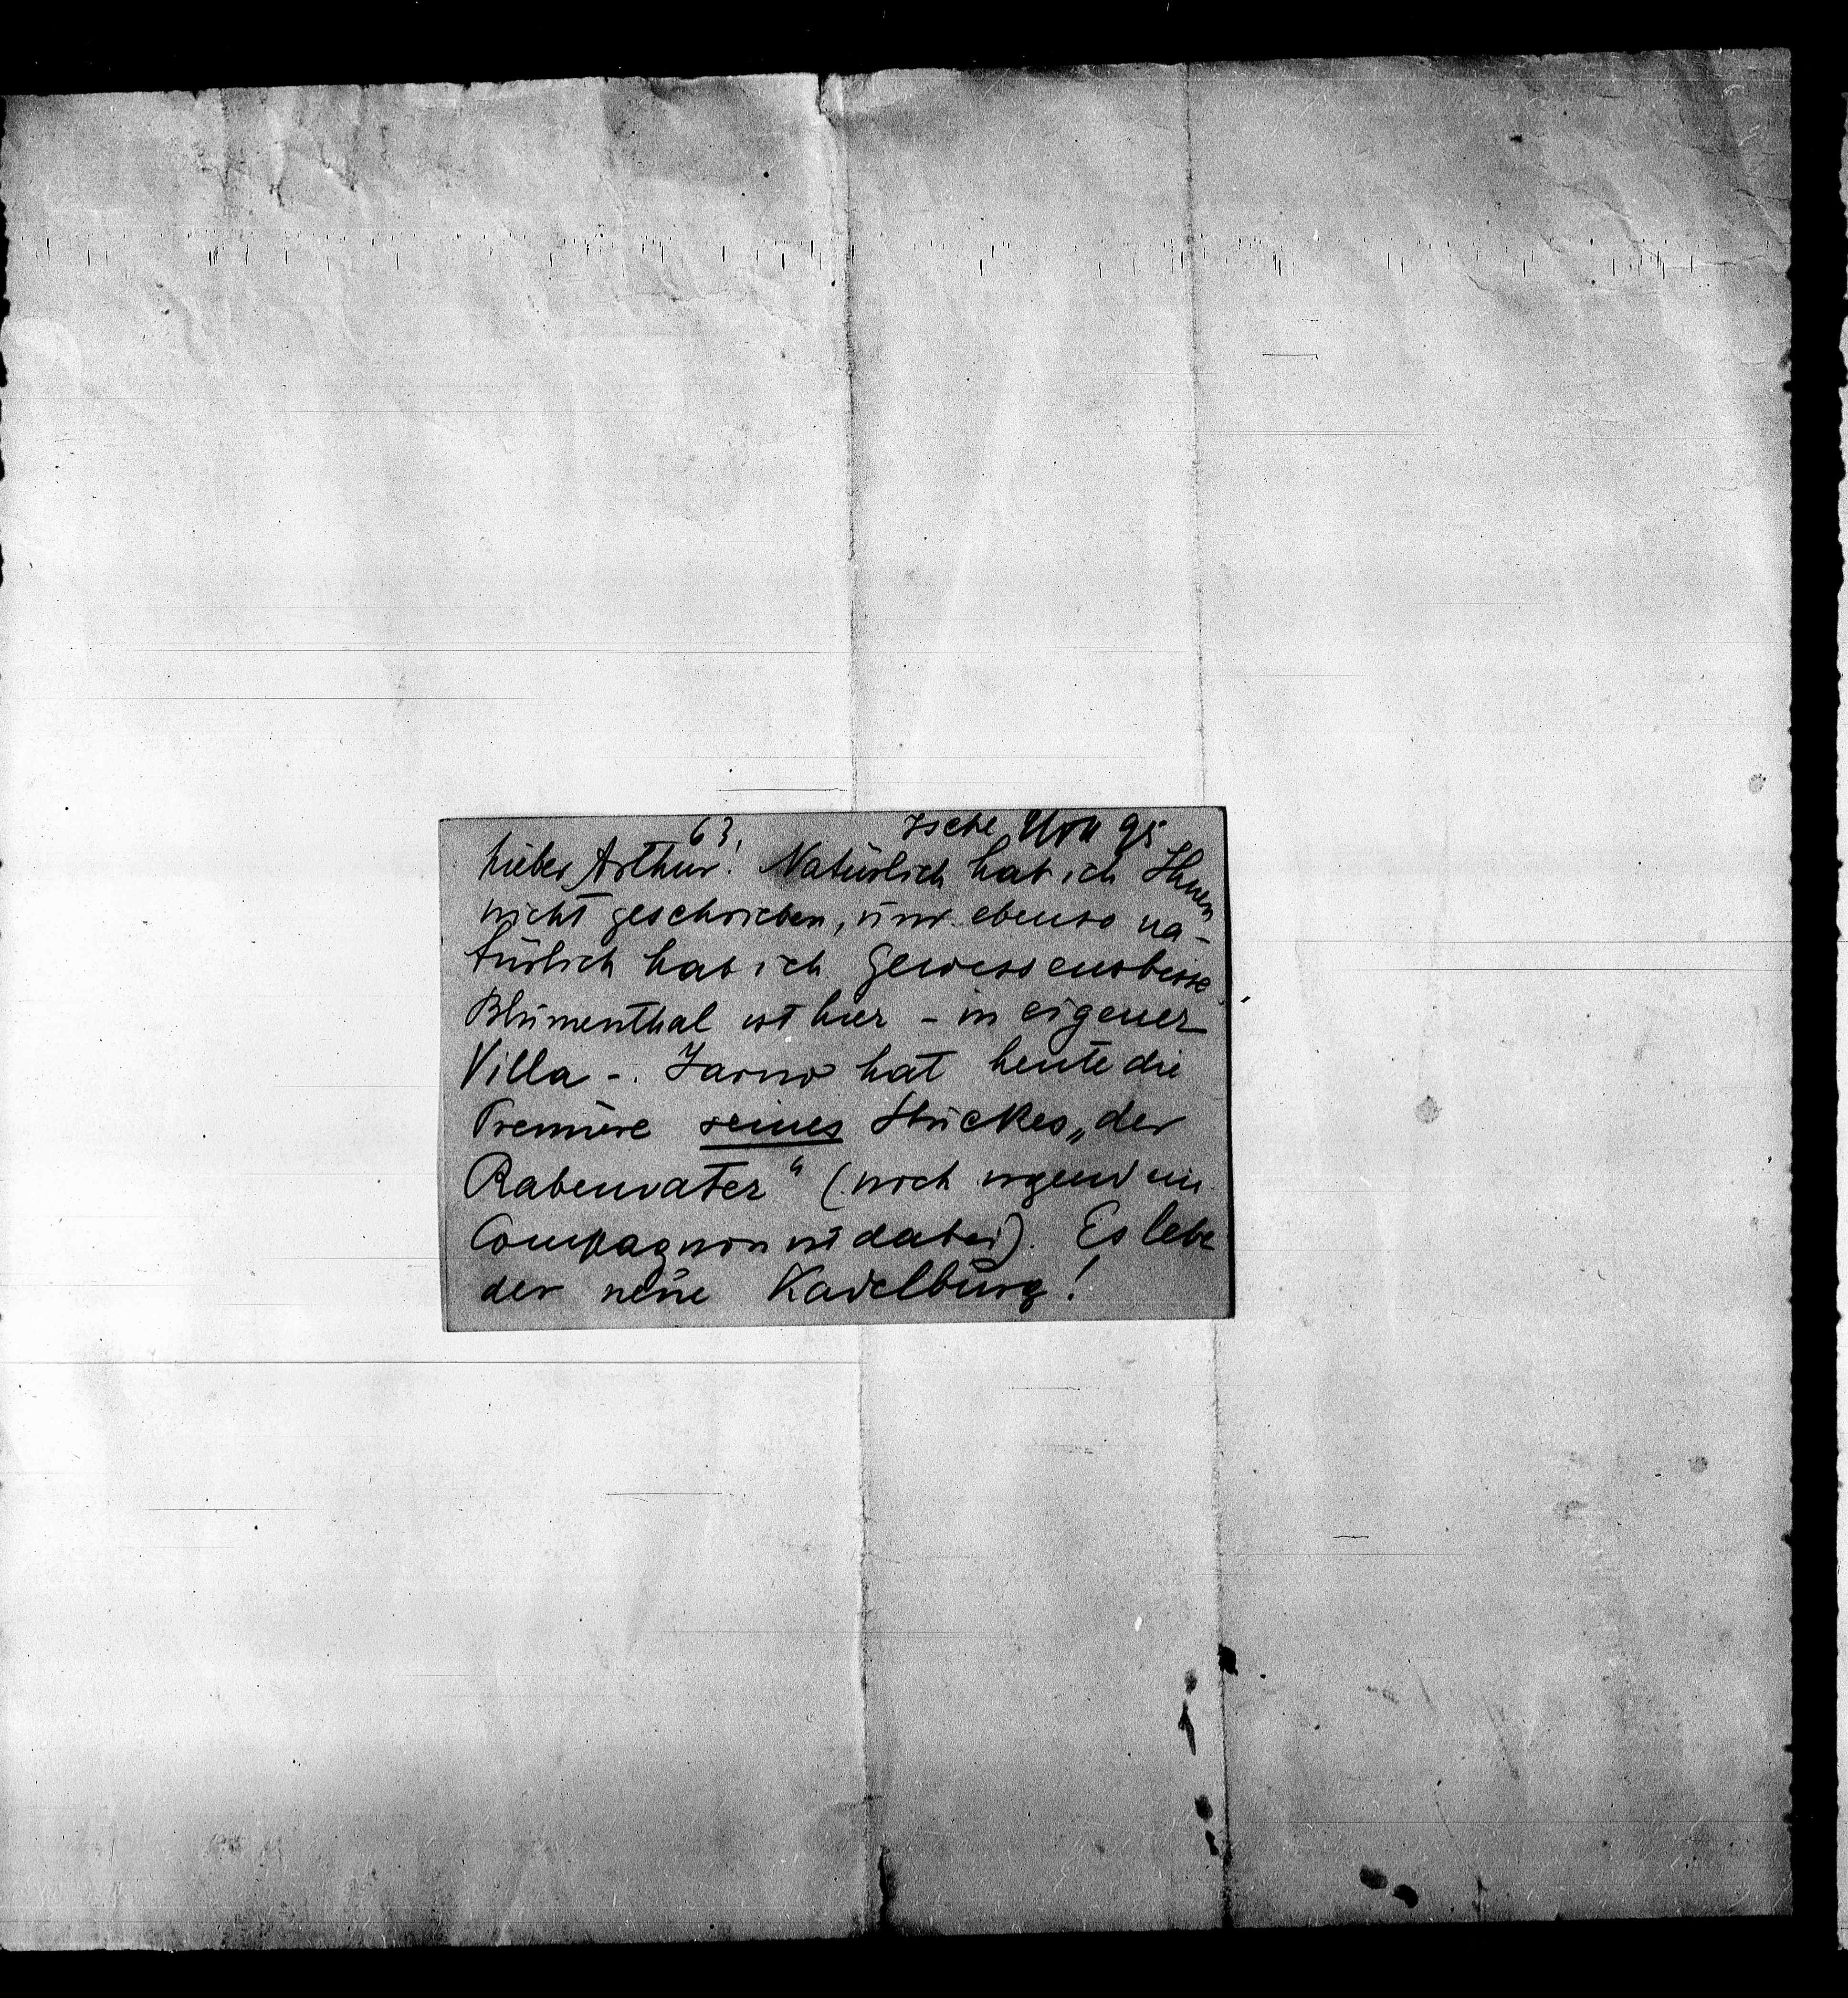 63.
Ischl, 2/VII 95
Lieber Arthur! Natürlich hab ich Ihnen
nicht geschrieben, und ebenso na-
türlich hab ich Gewissensbisse
Blumenthal ist hier – in eigener
Villa –. Jarno hat heute die
Premiere seines Stückes „der
Rabenvater“ (noch irgend ein
Compagnon ist dabei). Es lebe
der neue Kadelburg!